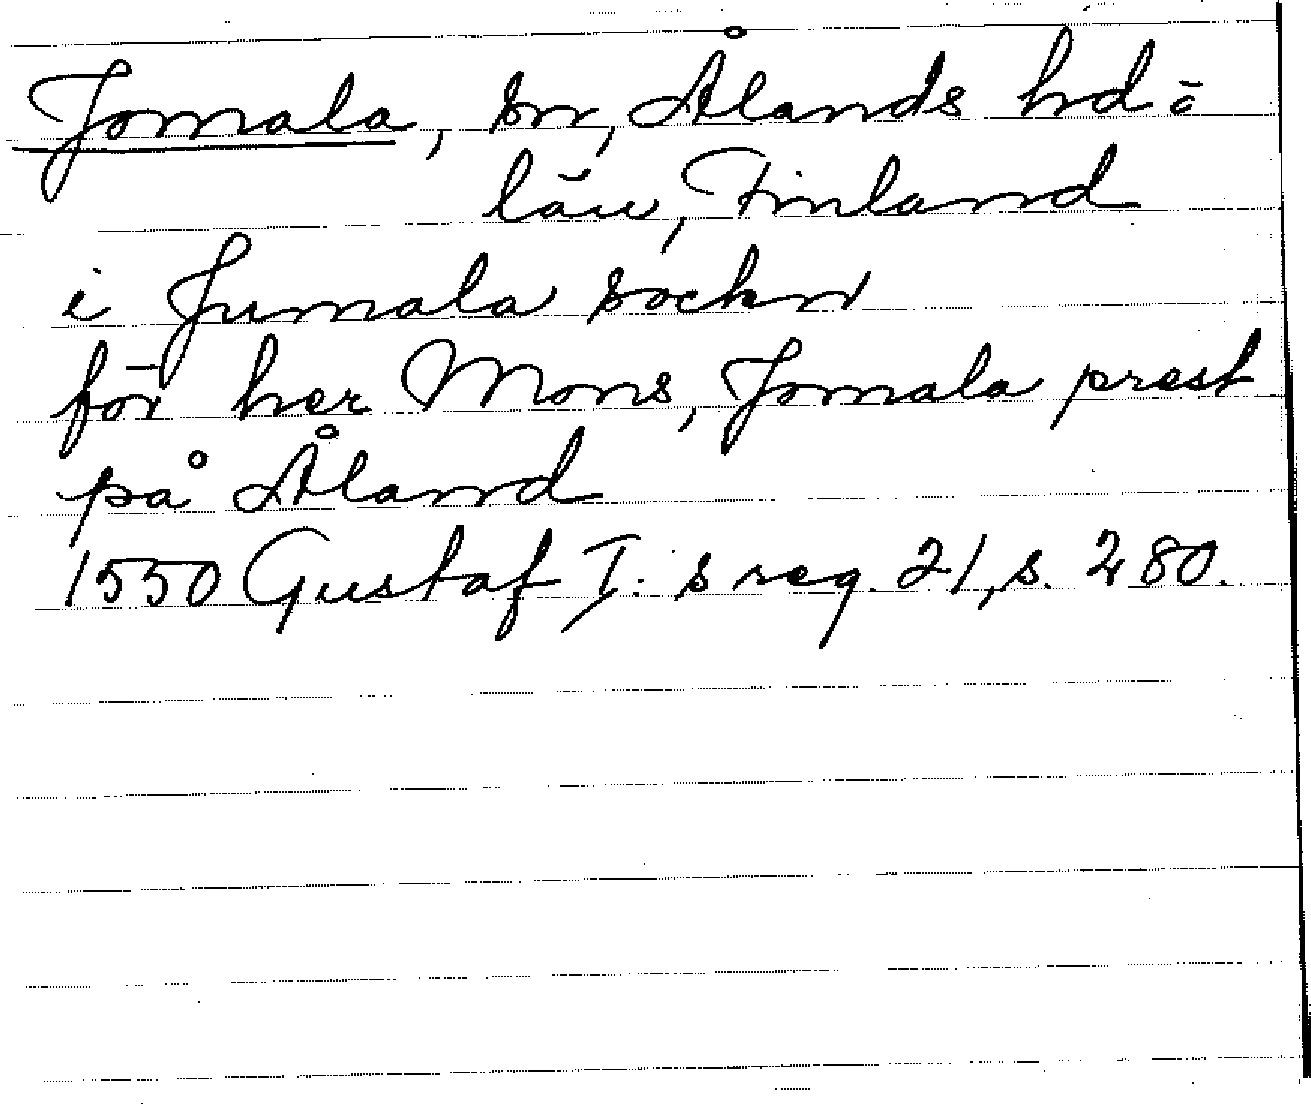 Jomala, sn, Ålands hd ö
län, Finland
i Jumala sockn
för her Mons, Jomala prest
på Åland
1550 Gustaf I:s reg. 21, s. 280.